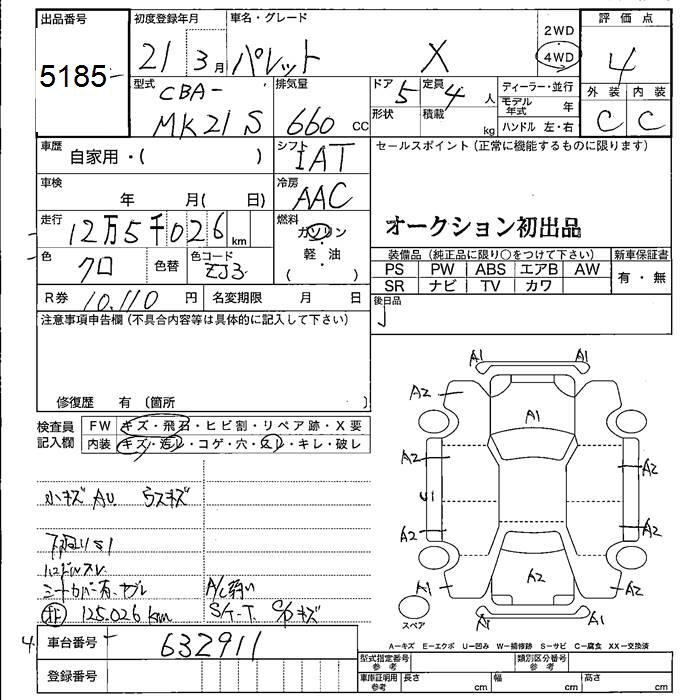 出品番号
5185
初度登録年月
21 3月
車名・グレード
パレット X
2WD
4WD
評価点
4
型式
CBA-
MK21S
排気量
660 CC
ドア
5
定員
4 人
形状
積載
kg
ディーラー・並行
モデル年式 年
ハンドル 左・右
外装 内装
C C
車歴
自家用・( )
シフト
IAT
セールスポイント (正常に機能するものに限ります)
オークション初出品
車検
年 月( 日)
冷房
AAC
走行
12万5千026 km
燃料
ガソリン・
軽・油
( )
色
クロ
色替
色コード
ZJ3
装備品 (純正品に限り○をつけて下さい)
新車保証書
PS PW ABS エアB AW
SR ナビ TV カワ
有・無
R券 10,110 円
名変期限 月 日
後日品
注意事項申告欄 (不具合内容等は具体的に記入して下さい)
修復歴 有 (箇所 )
検査員
記入欄
FW キズ・飛石・ヒビ割・リペア跡・X要
内装 キズ・汚レ・コゲ・穴・スレ・キレ・破レ
小キズ AU ウスキズ
ハンドルスレ
シートカバー有
A/C弱い
125.026 km
A1 A1
A2
A1
A2 A2
U1
A2 A2
A1 A2 A2
A1 A1
スペア
A−キズ E−エクボ U−凹み W−補修跡 S−サビ C−腐食 XX−交換済
車台番号
632911
登録番号
型式指定番号
参考
類別区分番号
参考
車庫証明用
参考
長さ cm
幅 cm
高さ cm